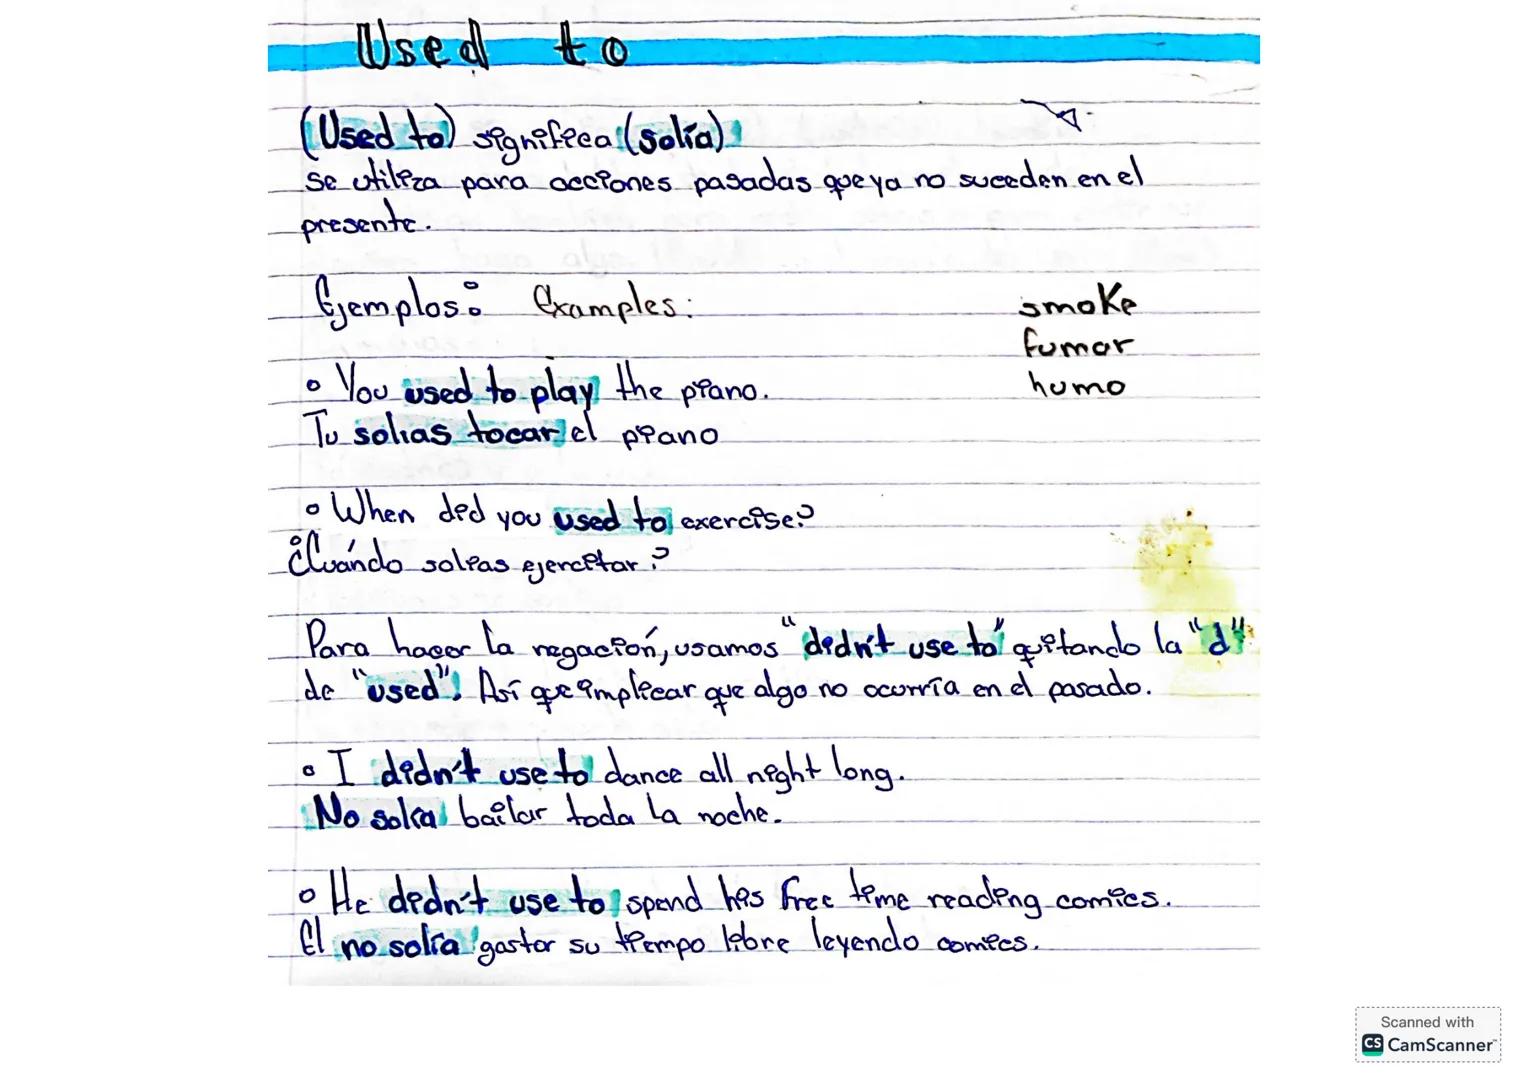 Used to
(Used to) significa (solía)
se utiliza para acciones pasadas que ya no suceden en el
presente.
Ejemplos: Examples:
smoke
fumar
humo
• You used to play the piano.
Tu solias tocar el piano
• When did you used to exercise?
¿Cuándo solias ejercitar?
Para hacer la negación, usamos "didn't use to" quitando la "d"
de "used". Así que implicar que algo no ocurría en el pasado.
• I didn't use to dance all night long.
No solía bailar toda la noche.
• He didn't use to spend his free time reading comics.
El no solía gastar su tiempo libre leyendo comics.
Scanned with
CS CamScanner